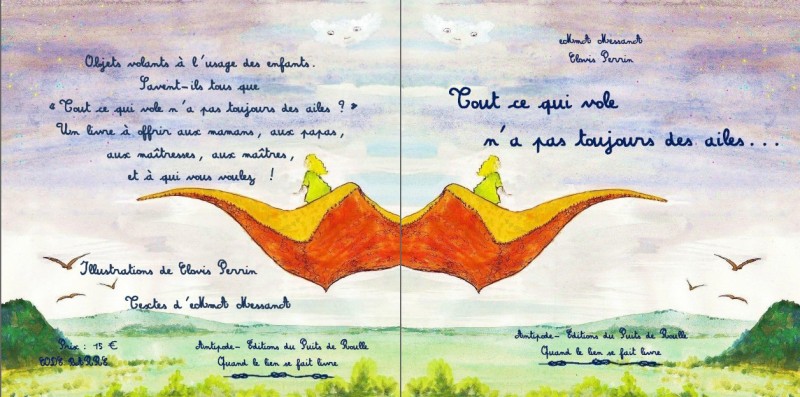 Objets volants à l'usage des enfants.
Savent-ils tous que
« Tout ce qui vole n'a pas toujours des ailes ? »
Un livre à offrir aux mamans, aux papas,
aux maîtresses, aux maîtres,
et à qui vous voulez !
Illustrations de Clovis Perrin
Textes d'eMmA MessanA
Prix : 15 €
CODE BARRE
Antipode- Editions du Puits de Roulle
Quand le lien se fait livre
eMmA MessanA
Clovis Perrin
Tout ce qui vole
n'a pas toujours des ailes...
Antipode- Editions du Puits de Roulle
Quand le lien se fait livre